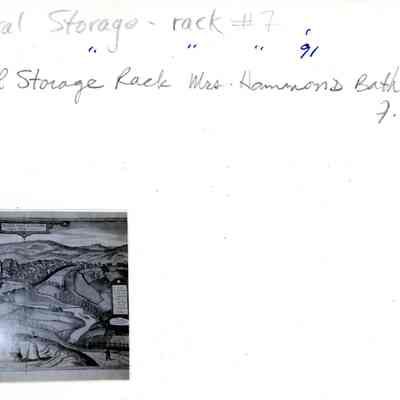 ral Storage - rack #7
" " " '91
l Storage Rack Mrs. Hammond Bath
7.